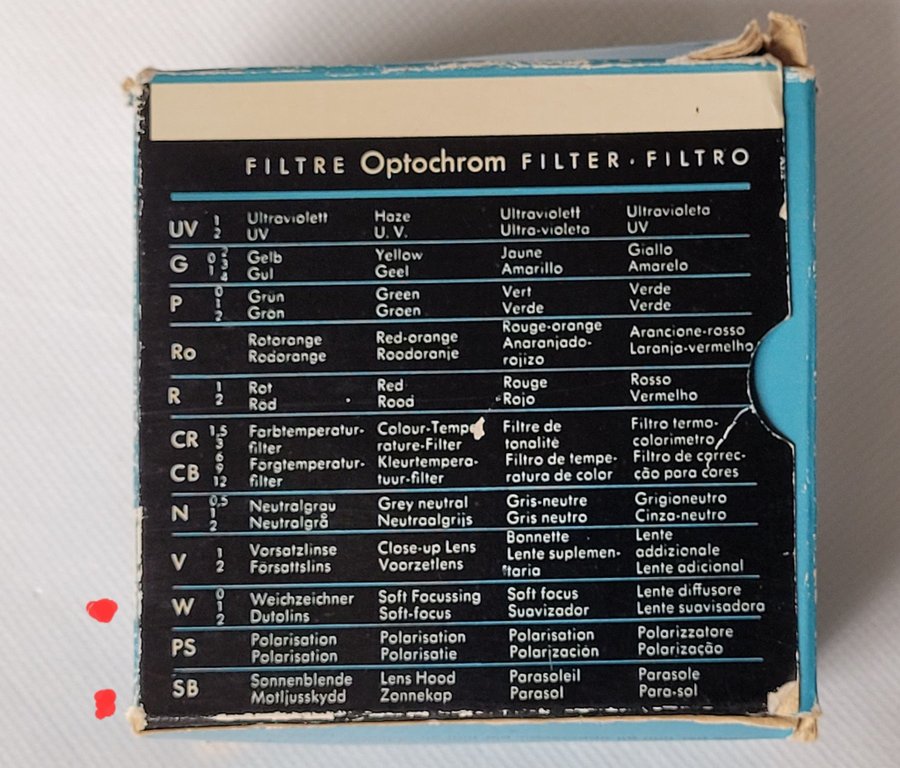 FILTRE Optochrom FILTER · FILTRO
UV 1 Ultraviolett Haze Ultraviolett Ultravioleta
2 UV U. V. Ultra-violeta UV
G 0 Gelb Yellow Jaune Giallo
1 Gul Geel Amarillo Amarelo
P 0 Grün Green Vert Verde
1
2 Grön Groen Verde Verde
Ro Rotorange Red-orange Rouge-orange Arancione-rosso
Rödorange Roodoranje Anaranjado-rojizo Laranja-vermelho
R 1 Rot Red Rouge Rosso
2 Röd Rood Rojo Vermelho
CR 1,5 Farbtemperatur- Colour-Tempe Filtre de Filtro termo-
3 filter rature-Filter tonalité colorimetro
CB 6 Färgtemperatur- Kleurtempera- Filtro de tempe- Filtro de correc-
9
12 filter tuur-filter ratura de color ção para côres
N 0,5 Neutralgrau Grey neutral Gris-neutre Grigioneutro
1
2 Neutralgrå Neutraalgrijs Gris neutro Cinza-neutro
V 1 Vorsatzlinse Close-up Lens Bonnette Lente
2 Försättslins Voorzetlens Lente suplemen- addizionale
taria Lente adicional
W 0 Weichzeichner Soft Focussing Soft focus Lente diffusore
1
2 Dutolins Soft-focus Suavizador Lente suavisadora
PS Polarisation Polarisation Polarisation Polarizzatore
Polarisation Polarisatie Polarización Polarização
SB Sonnenblende Lens Hood Parasoleil Parasole
Motljusskydd Zonnekap Parasol Para-sol